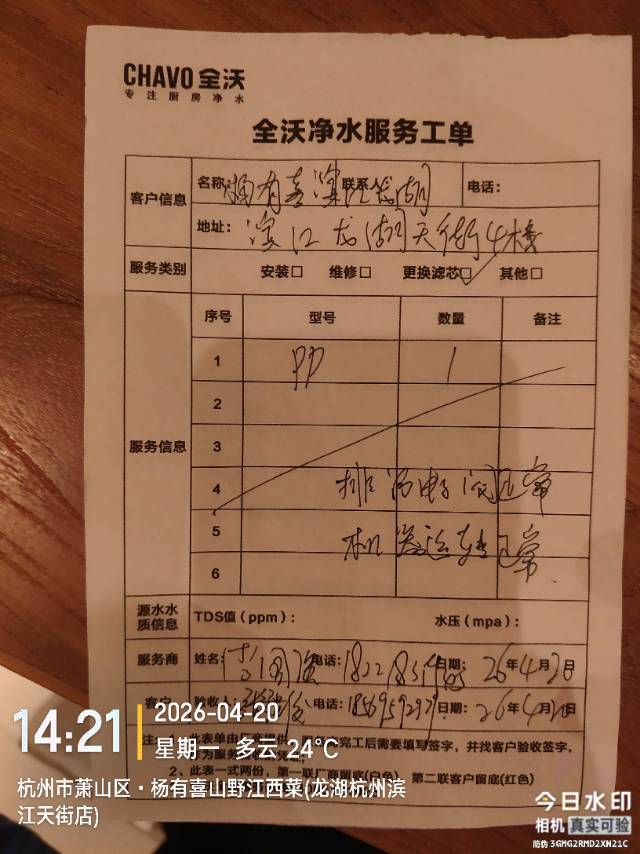 CHAVO 全沃
专注厨房净水
全沃净水服务工单
客户信息
名称: 杨有喜滨江龙湖 联系人 电话:
地址: 滨江龙湖天街4栋
服务类别 安装□ 维修□ 更换滤芯☑ 其他□
服务信息
序号 型号 数量 备注
1 PP 1
2
3
4 排污电子阀正常
5 机器运转正常
6
源水水质信息 TDS值(ppm): 水压(mpa):
服务商 姓名: 电话: 日期: 26年4月20日
客户 验收人: 电话: 日期: 26年4月20日
注: 1、此表单由
完工后需要填写签字,并找客户验收签字,
为服务
2、此表一式两份,第一联厂商留底(白色) 第二联客户留底(红色)
14:21
2026-04-20
星期一 多云 24°C
杭州市萧山区·杨有喜山野江西菜(龙湖杭州滨
江天街店)
今日水印
相机 真实可验
防伪 3GMG2RMD2XN21C